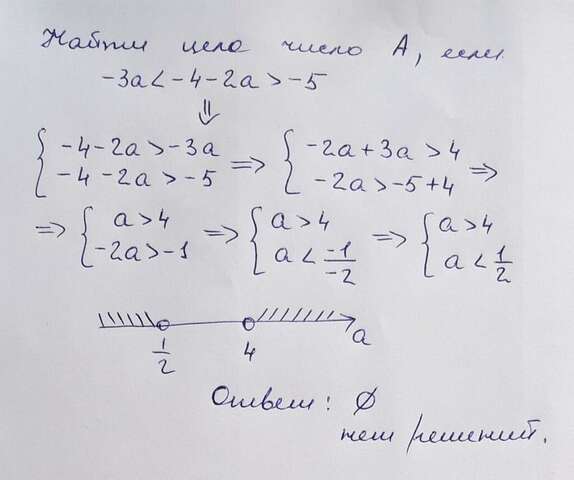 Найти цело число А, если
-3a < -4 - 2a > -5
⇓
{ -4-2a > -3a ⇒ { -2a+3a > 4
{ -4-2a > -5 { -2a > -5+4 ⇒
⇒ { a > 4 ⇒ { a > 4 ⇒ { a > 4
{ -2a > -1 { a < -1/-2 { a < 1/2
1/2 4 a
Ответ: ∅
нет решений.